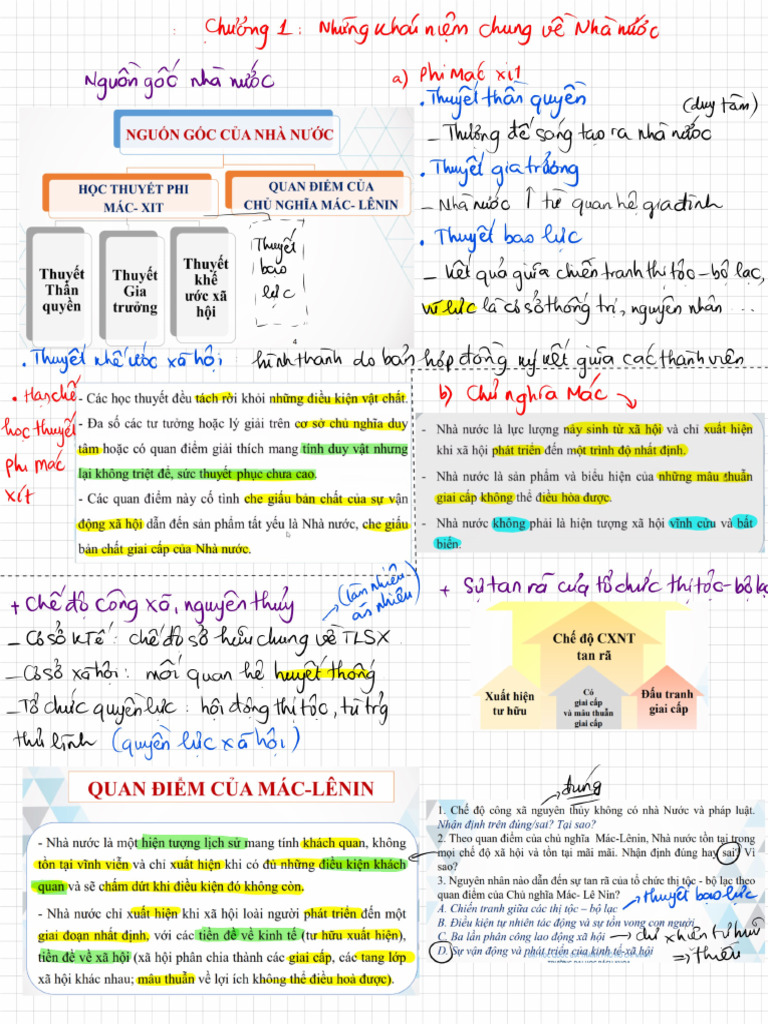 Chương 1: Những khái niệm chung về Nhà nước
Nguồn gốc nhà nước
NGUỒN GỐC CỦA NHÀ NƯỚC
HỌC THUYẾT PHI
MÁC- XIT
QUAN ĐIỂM CỦA
CHỦ NGHĨA MÁC- LÊNIN
Thuyết
Thần
quyền
Thuyết
Gia
trưởng
Thuyết
khế
ước xã
hội
Thuyết
bạo
lực
4
a) Phi Mác xít
• Thuyết thần quyền
(duy tâm)
- Thượng đế sáng tạo ra nhà nước
• Thuyết gia trưởng
- Nhà nước ↑ từ quan hệ gia đình
• Thuyết bạo lực
- Kết quả giữa chiến tranh thị tộc - bộ lạc,
vũ lực là cơ sở thống trị, nguyên nhân ...
• Thuyết khế ước xã hội : hình thành do bản hợp đồng ký kết giữa các thành viên
• Hạn chế
học thuyết
phi mác
xít
- Các học thuyết đều tách rời khỏi những điều kiện vật chất.
- Đa số các tư tưởng hoặc lý giải trên cơ sở chủ nghĩa duy
tâm hoặc có quan điểm giải thích mang tính duy vật nhưng
lại không triệt để, sức thuyết phục chưa cao.
- Các quan điểm này cố tình che giấu bản chất của sự vận
động xã hội dẫn đến sản phẩm tất yếu là Nhà nước, che giấu
bản chất giai cấp của Nhà nước.
b) Chủ nghĩa Mác
- Nhà nước là lực lượng nảy sinh từ xã hội và chỉ xuất hiện
khi xã hội phát triển đến một trình độ nhất định.
- Nhà nước là sản phẩm và biểu hiện của những mâu thuẫn
giai cấp không thể điều hòa được.
- Nhà nước không phải là hiện tượng xã hội vĩnh cửu và bất
biến.
+ Chế độ công xã, nguyên thủy
- Cơ sở KTế : chế độ sở hữu chung về TLSX
- Cơ sở xã hội : mối quan hệ huyết thống
- Tổ chức quyền lực : hội đồng thị tộc, tù trg
thủ lĩnh (quyền lực xã hội)
+ Sự tan rã của tổ chức thị tộc - bộ lạc
Chế độ CXNT
tan rã
Xuất hiện
tư hữu
Có
giai cấp
và mâu thuẫn
giai cấp
Đấu tranh
giai cấp
QUAN ĐIỂM CỦA MÁC-LÊNIN
- Nhà nước là một hiện tượng lịch sử mang tính khách quan, không
tồn tại vĩnh viễn và chỉ xuất hiện khi có đủ những điều kiện khách
quan và sẽ chấm dứt khi điều kiện đó không còn.
- Nhà nước chỉ xuất hiện khi xã hội loài người phát triển đến một
giai đoạn nhất định, với các tiền đề về kinh tế (tư hữu xuất hiện),
tiền đề về xã hội (xã hội phân chia thành các giai cấp, các tang lớp
xã hội khác nhau; mâu thuẫn về lợi ích không thể điều hoà được).
đúng
1. Chế độ công xã nguyên thủy không có nhà Nước và pháp luật.
Nhận định trên đúng/sai? Tại sao?
2. Theo quan điểm của chủ nghĩa Mác-Lênin, Nhà nước tồn tại trong
mọi chế độ xã hội và tồn tại mãi mãi. Nhận định đúng hay sai? Vì
sao?
3. Nguyên nhân nào dẫn đến sự tan rã của tổ chức thị tộc - bộ lạc theo
quan điểm của Chủ nghĩa Mác- Lê Nin?
thuyết bạo lực
A. Chiến tranh giữa các thị tộc – bộ lạc
B. Điều kiện tự nhiên tác động và sự tồn vong con người
C. Ba lần phân công lao động xã hội
D. Sự vận động và phát triển của kinh tế-xã hội
⇒ thiếu